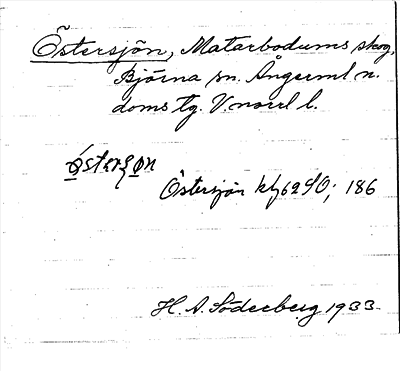 Östersjön, Matarbodums skog,
Björna sn. Ångerml n.
doms tg. V. norrl l.
Östersjön kbl 62 SO; 186
H. A. Söderberg 1933